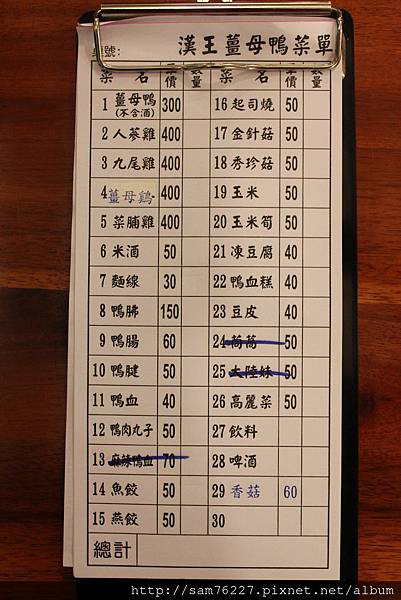 號:
漢王薑母鴨菜單
菜名 單價 數量 菜名 單價 數量
1 薑母鴨(不含酒) 300
2 人蔘雞 400
3 九尾雞 400
4 薑母鷄 400
5 菜脯雞 400
6 米酒 50
7 麵線 30
8 鴨胇 150
9 鴨腸 60
10 鴨腱 50
11 鴨血 40
12 鴨肉丸子 50
13 麻辣鴨血 70
14 魚餃 50
15 燕餃 50
總計
16 起司燒 50
17 金針菇 50
18 秀珍菇 50
19 玉米 50
20 玉米筍 50
21 凍豆腐 40
22 鴨血糕 40
23 豆皮 40
24 茼萵 50
25 大陸妹 50
26 高麗菜 50
27 飲料
28 啤酒
29 香菇 60
30
http://sam76227.pixnet.net/album